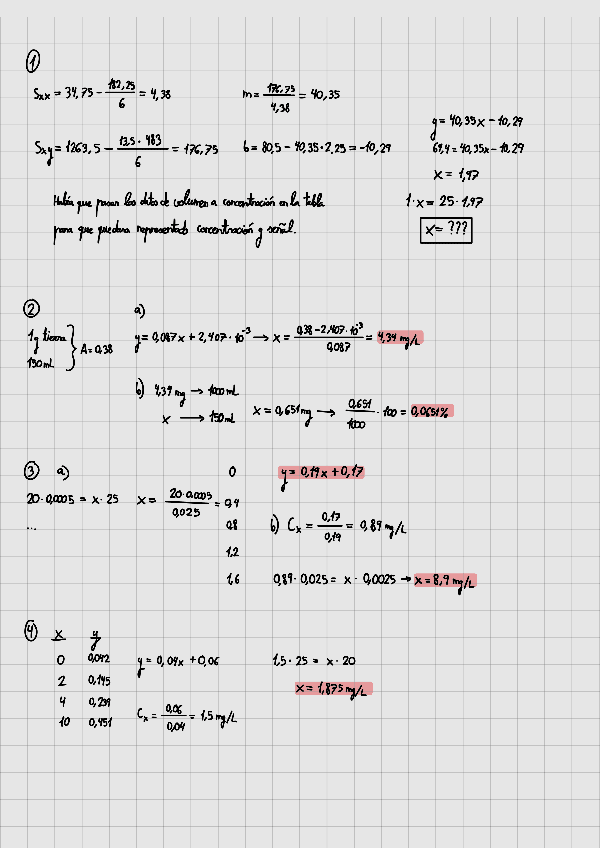 1
Sxx = 34,75 - 182,25/6 = 4,38
m = 176,75/4,38 = 40,35
y = 40,35x - 10,29
Sxy = 1263,5 - 13,5 · 483/6 = 176,75
b = 80,5 - 40,35 · 2,25 = -10,29
69,4 = 40,35x - 10,29
x = 1,97
Había que pasar los datos de volumen a concentración en la tabla
1 · x = 25 · 1,97
para que quedara representado concentración y señal.
x = ???
2
a)
1g tierra
150mL
A = 0,38
y = 0,087x + 2,407 · 10⁻³ → x = 0,38 - 2,407 · 10⁻³/0,087 = 4,34 mg/L
b) 4,34 mg → 1000 mL
x → 150mL
x = 0,651 mg → 0,651/1000 · 100 = 0,0651%
3 a)
0
y = 0,19x + 0,17
20 · 0,0005 = x · 25
x = 20 · 0,0005/0,025 = 0,4
...
0,8
b) Cx = 0,17/0,19 = 0,89 mg/L
1,2
1,6
0,89 · 0,025 = x · 0,0025 → x = 8,9 mg/L
4
x y
0 0,042
y = 0,04x + 0,06
1,5 · 25 = x · 20
2 0,145
x = 1,875 mg/L
4 0,239
10 0,451
Cx = 0,06/0,04 = 1,5 mg/L